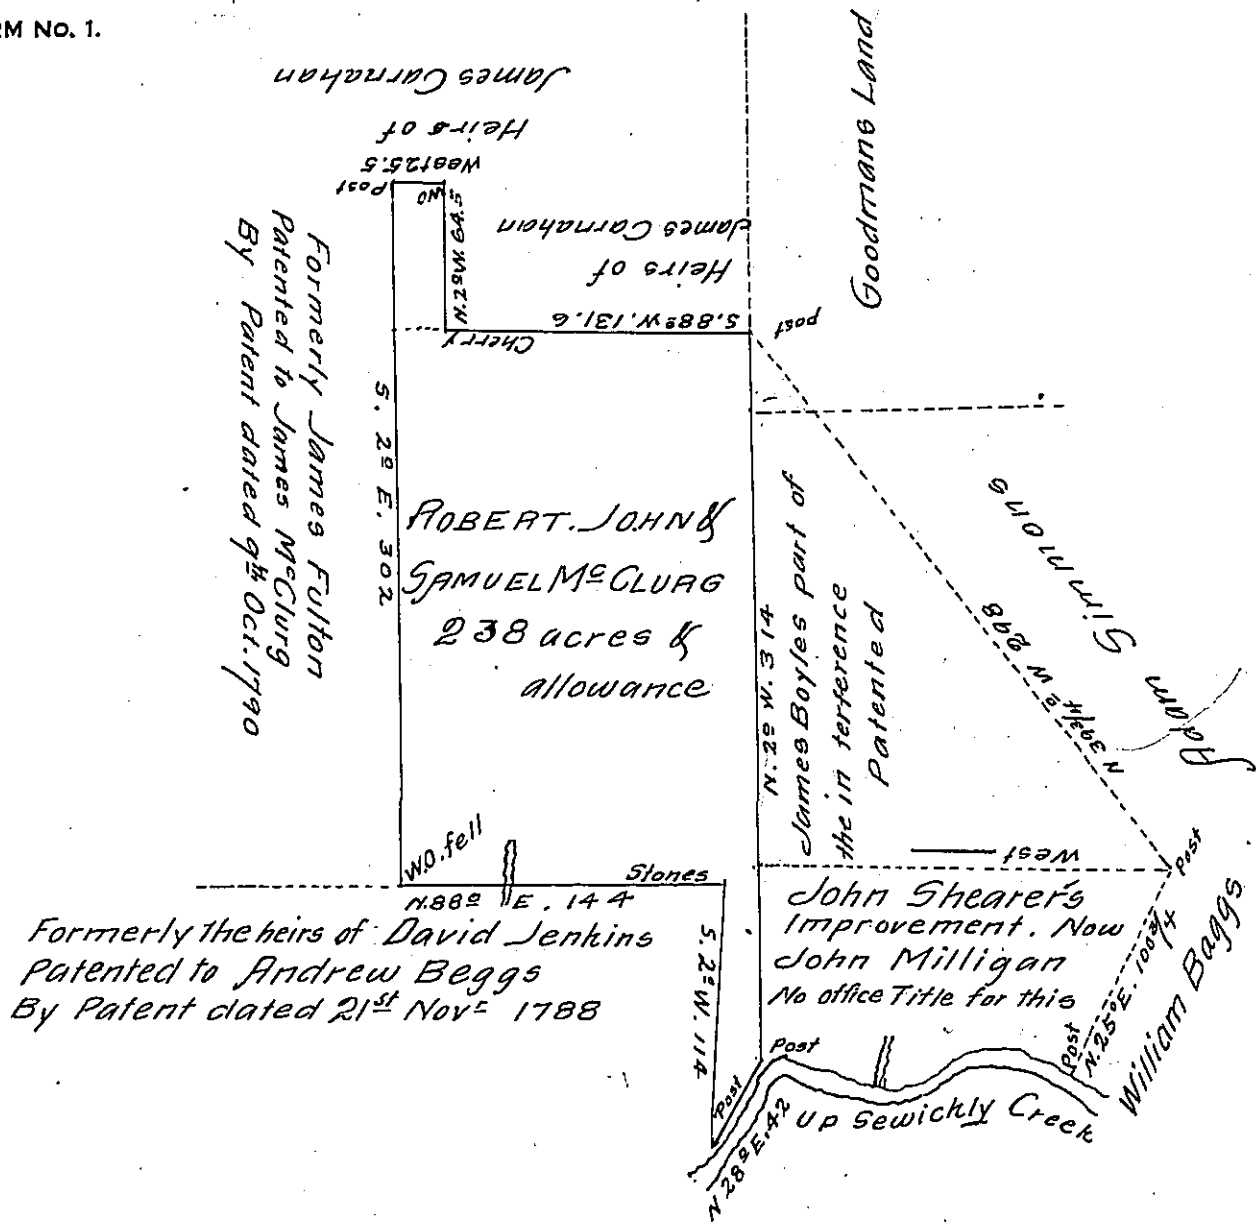 RM No. 1.
James Carnahan
Heirs of
West 25.5
Post
WO
N. 2º W. 64.5
James Carnahan
Heirs of
S. 88º W. 131.6
Cherry
post
Goodmans Land
Formerly James Fulton
Patented to James McClurg
By Patent dated 9th Oct. 1790
S. 2º E. 302
ROBERT. JOHN &
SAMUEL Mc CLURG
238 acres &
allowance
N. 2º W. 314
James Boyles part of
the in terference
Patented
Adam Simmons
N 39 3/4º W 298
W.O. fell
Stones
N. 88º E. 144
West
Post
Formerly the heirs of David Jenkins
Patented to Andrew Beggs
By Patent dated 21st Novr 1788
S. 2º W. 114
John Shearer's
Improvement. Now
John Milligan
No office Title for this
Post
Post
Post
N. 25º E. 100 3/4
William Baggs
N 28º E. 42
Up Sewickly Creek